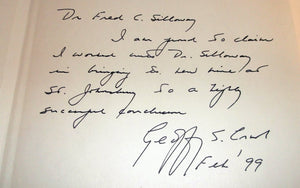 Dr Fred C. Silloway
I am proud to claim
I worked with Dr. Silloway
in bringing St.
St. Johnsbury to a highly
successful conclusion
Geoff S.
Feb '99